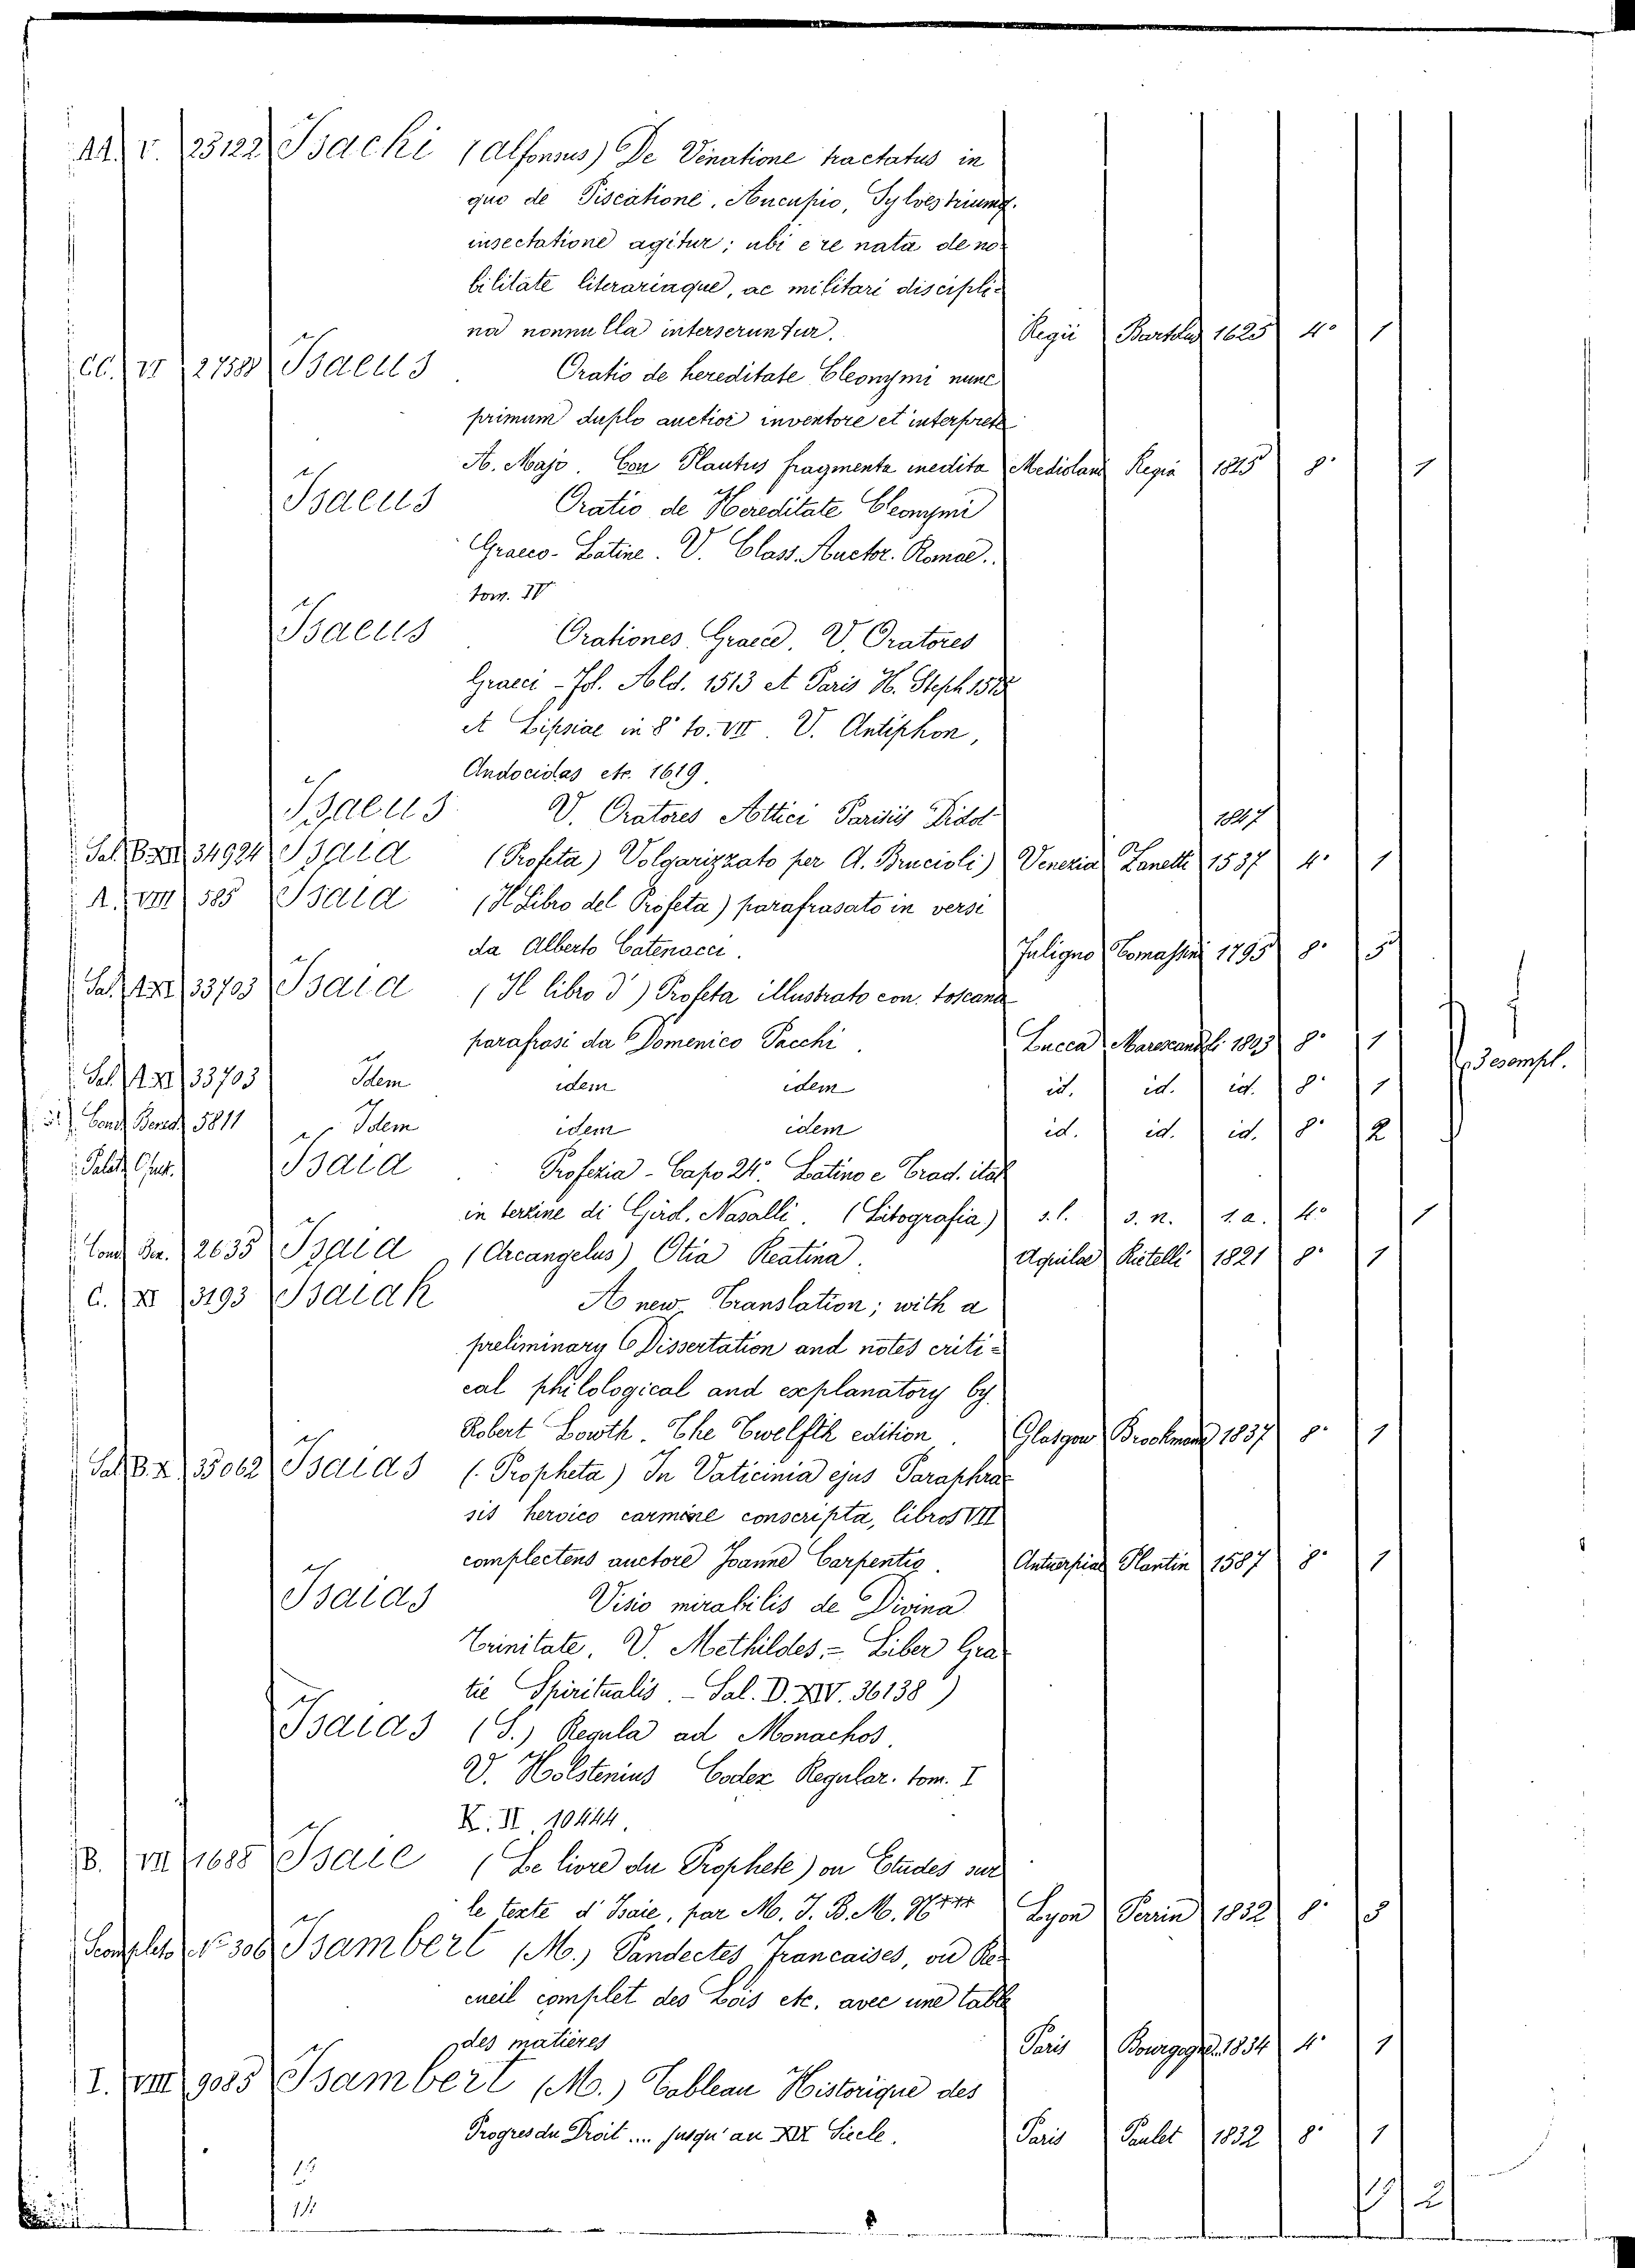 AA. V. 23122 Isachi (Alfonsus) De Venatione tractatus in
quo de Piscatione, Aucupio, Sylvestriumq.
insectatione agitur; ubi e re nata de no-
bilitate literariaque, ac militari discipli-
na nonnulla interseruntur. Regii Bartholus 1625 4° 1
CC. VI 27588 Isaeus Oratio de hereditate Cleonymi nunc
primum duplo auctior inventore et interprete
A. Majo. Con Plautus fragmenta inedita Mediolani Regia 1815 8° 1
Isaeus Oratio de Hereditate Cleonymi
Graeco-Latine. V. Class. Auctor. Romae.
tom. IV
Isaeus Orationes Graece. V. Oratores
Graeci - Fol. Ald. 1513 et Paris H. Steph 1575
et Lipsiae in 8° to. VII. V. Antiphon,
Andocidas etc. 1619.
Isaeus V. Oratores Attici Parisiis Didot 1847
Sal. B. XII 34924 Isaia (Profeta) Volgarizzato per A. Brucioli) Venezia Zanetti 1537 4° 1
A. VIII 585 Isaia (Il Libro del Profeta) parafrasato in versi
da Alberto Catenacci. Fuligno Tomassini 1795 8° 5
Sal. A XI 33703 Isaia (Il libro d') Profeta illustrato con. toscana
parafrasi da Domenico Pacchi. Lucca Marescandoli 1803 8° 1
Sal. A XI 33703 Idem idem idem id. id. id. 8° 1 3 esempl.
Cond. Bened. 5811 Idem idem idem id. id. id. 8° 2
Palat. Opusc. Isaia Profezia - Capo 24° Latino e Trad. ital
in terzine di Gird. Nasalli. (Litografia) s. l. s. n. s. a. 4° 1
Cond. Ben. 2635 Isaia (Arcangelus) Otia Reatina. Aquilae Rietelli 1821 8° 1
C. XI 3193 Isaiah A new Translation; with a
preliminary Dissertation and notes criti-
cal philological and explanatory by
Robert Lowth. The Twelfth edition. Glasgow Brockmann 1837 8° 1
Sal. B. X 35062 Isaias (Propheta) In Vaticinia ejus Paraphra-
sis heroico carmine conscripta, libros VII
complectens auctore Joanne Carpentio. Antuerpiae Plantin 1587 8° 1
Isaias Visio mirabilis de Divina
Trinitate. V. Methildes, = Liber Gra-
tie Spiritualis. - Sal. D. XIV. 36138)
Isaias (S.) Regula ad Monachos.
V. Holstenius Codex Regular. tom. I
K. II. 10444.
B. VII 1688 Isaie (Le livre du Prophete) on Etudes sur
le texte d' Isaie, par M. J. B. M. N*** Lyon Perrin 1832 8° 3
Scompleto N° 306 Isambert (M.) Pandectes Francaises, ou Re-
cueil complet des Lois etc. avec une table
des matières Paris Bourgogne 1834 4° 1
I. VIII 9085 Isambert (M.) Tableau Historique des
Progres du Droit .... jusqu' au XIX Siecle. Paris Paulet 1832 8° 1